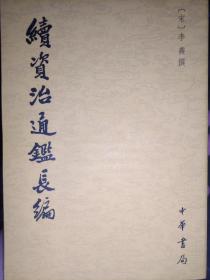 〔宋〕李燾撰
續資治通鑑長編
中華書局